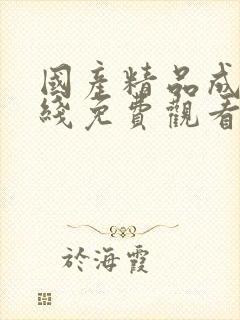 國產精品成
綫免費觀看
於海霞